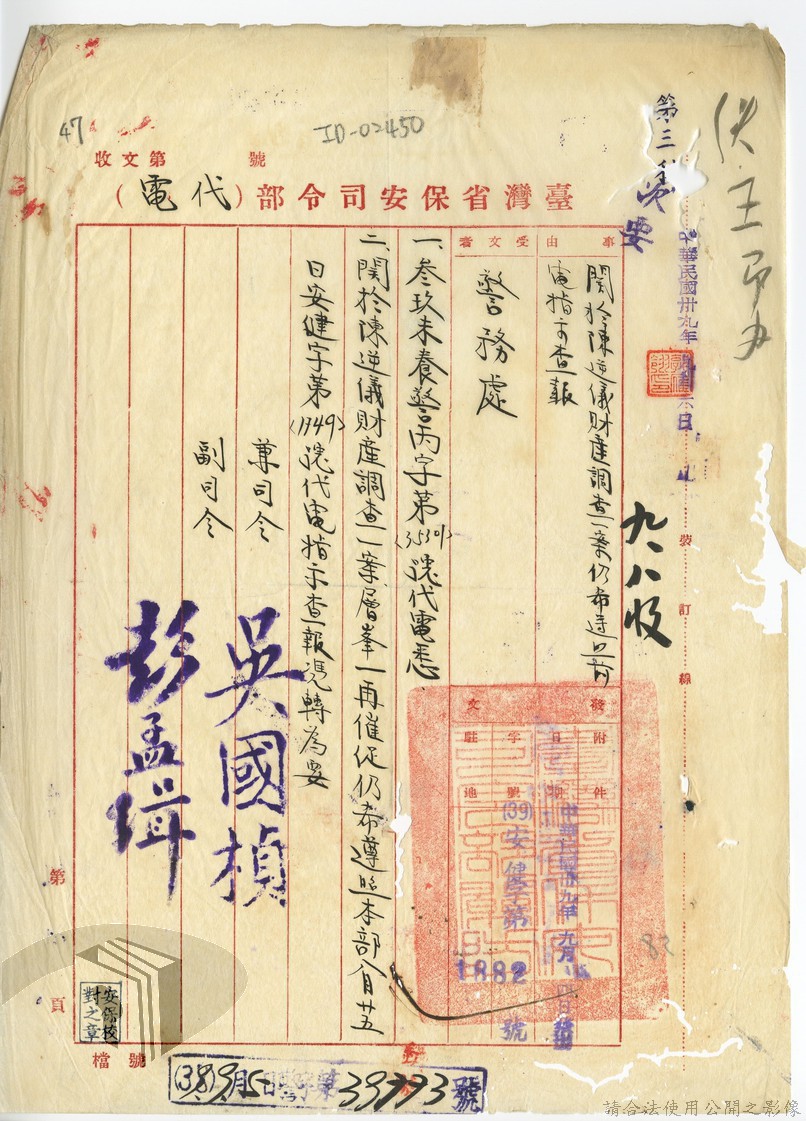 47
ID-02450
收文第　號
臺灣省保安司令部（代電）
第三
次要
中華民國卅九年
事由
關於陳逆儀財產調查一案仍希遵照前
電指示查報
受文者
警務處
一、叁玖未養警丙字第(35301)號代電悉
二、關於陳逆儀財產調查一案層峯一再催促仍希遵照本部八月廿五
日安健字第(1349)號代電指示查報憑轉為要
兼司令
吳國楨
副司令
彭孟緝
九、八收
裝訂線
發文
附件
日期
字號
駐地
中華民國卅九年九月
(39)安健字第
1882
號
82
第　頁
安保校
對之章
檔號
39773號
請合法使用公開之影像